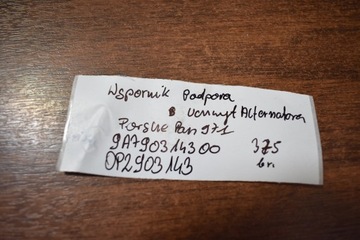 Wspornik Podpora
Uchwyt Alternatora
Porsche Pan 971
9A790314300 375
OP2903143 bn